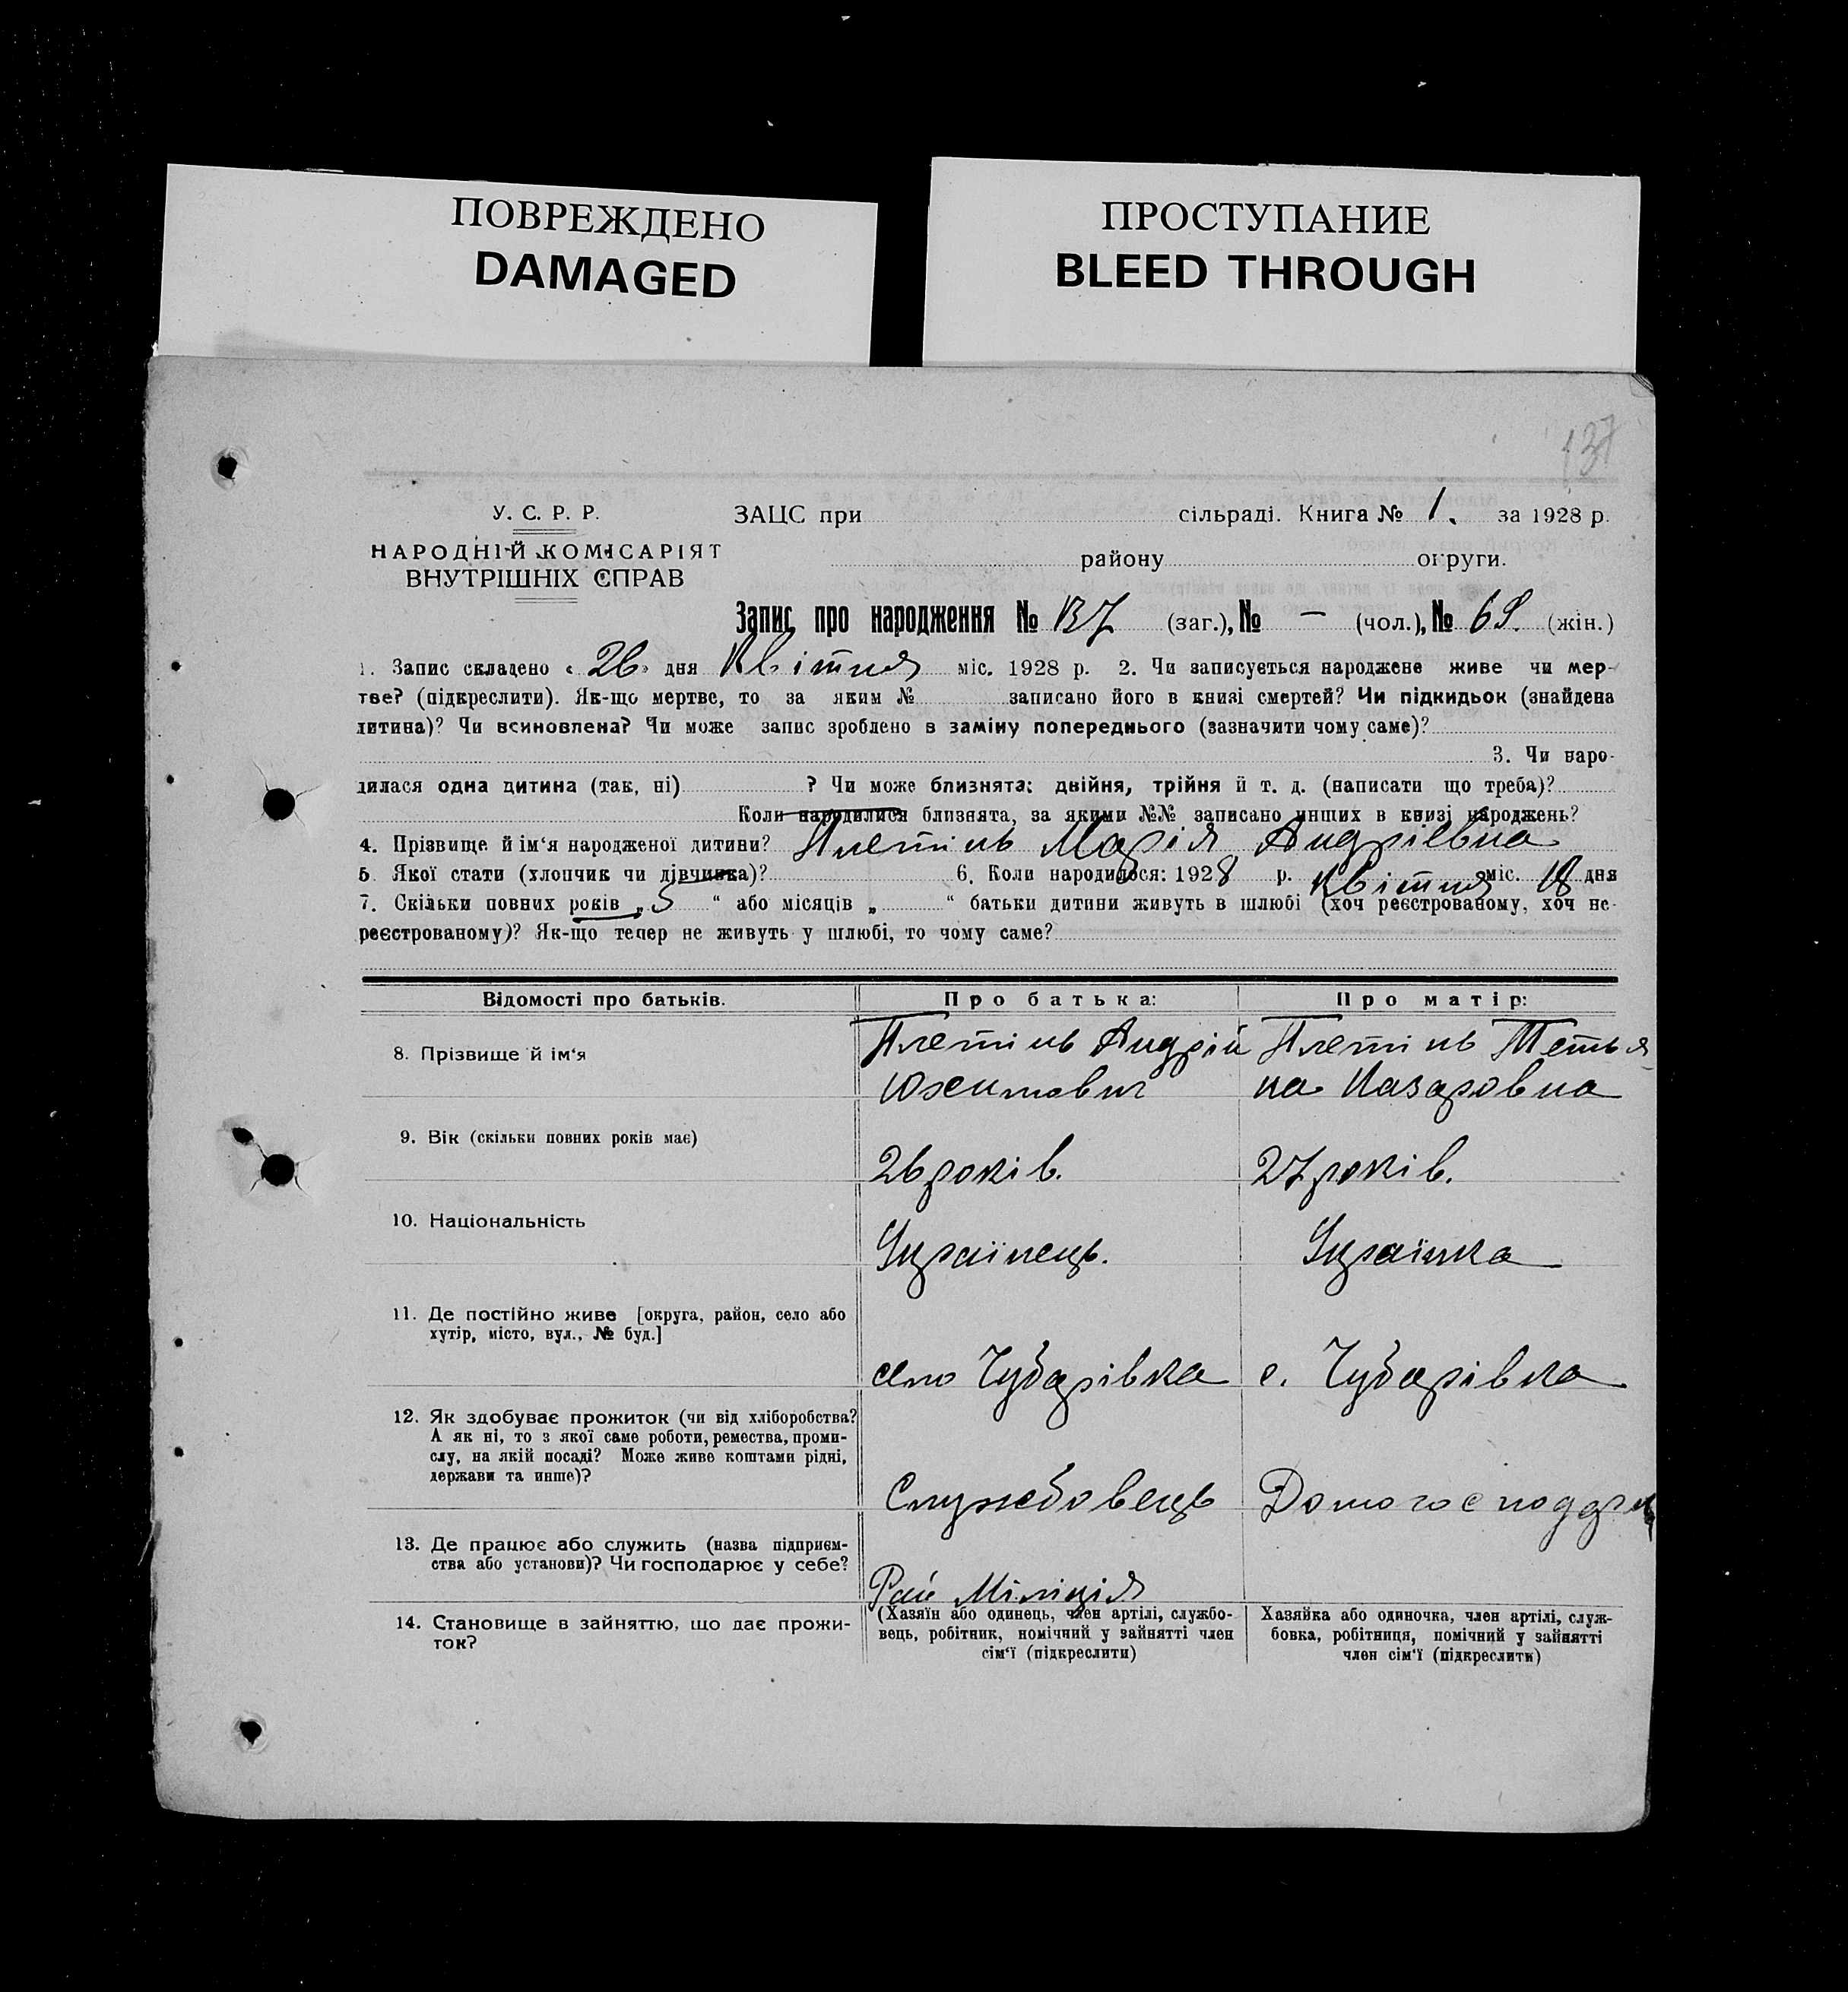 ПОВРЕЖДЕНО
DAMAGED
ПРОСТУПАНИЕ
BLEED THROUGH
137
У. С. Р. Р.
НАРОДНІЙ КОМІСАРІЯТ
ВНУТРІШНІХ СПРАВ
ЗАЦС при сільраді. Книга № 1. за 1928 р.
району округи.
Запис про народження № 137 (заг.), № — (чол.), № 69. (жін.)
1. Запис складено « 26 » дня Квітня міс. 1928 р. 2. Чи записується народжене живе чи мер-
тве? (підкреслити). Як-що мертве, то за яким № записано його в книзі смертей? Чи підкидьок (знайдена
дитина)? Чи всиновлена? Чи може запис зроблено в заміну попереднього (зазначити чому саме)?
3. Чи наро-
дилася одна дитина (так, ні) ? Чи може близнята: двійня, трійня й т. д. (написати що треба)?
Коли народилися близнята, за якими №№ записано инших в книзі народжень?
4. Прізвище й ім'я народженої дитини? Плетінь Марія Андріевна
5. Якої стати (хлопчик чи дівчинка)? 6. Коли народилося: 1928 р. Квітня міс. 18 дня
7. Скільки повних років „ 5 “ або місяців „ “ батьки дитини живуть в шлюбі (хоч реєстрованому, хоч не-
реєстрованому)? Як-що тепер не живуть у шлюбі, то чому саме?
Відомості про батьків. Про батька: Про матір:
8. Прізвище й ім'я
Плетінь Андрій Плетінь Тетья
на Назаровна
9. Вік (скільки повних років має)
26 років. 27 років.
10. Національність
Українець. Українка
11. Де постійно живе [округа, район, село або
хутір, місто, вул., № буд.]
село Чубарівка с. Чубарівка
12. Як здобуває прожиток (чи від хліборобства?
А як ні, то з якої саме роботи, ремества, проми-
слу, на якій посаді? Може живе коштами рідні,
держави та инше)?
Службовець
13. Де працює або служить (назва підприєм-
ства або установи)? Чи господарює у себе?
Рай Міліція
14. Становище в зайняттю, що дає прожи-
ток?
(Хазяїн або одинець, член артілі, службо-
вець, робітник, помічний у зайнятті член
сім'ї (підкреслити)
Хазяйка або одиночка, член артілі, служ-
бовка, робітниця, помічний у зайнятті
член сім'ї (підкреслити)